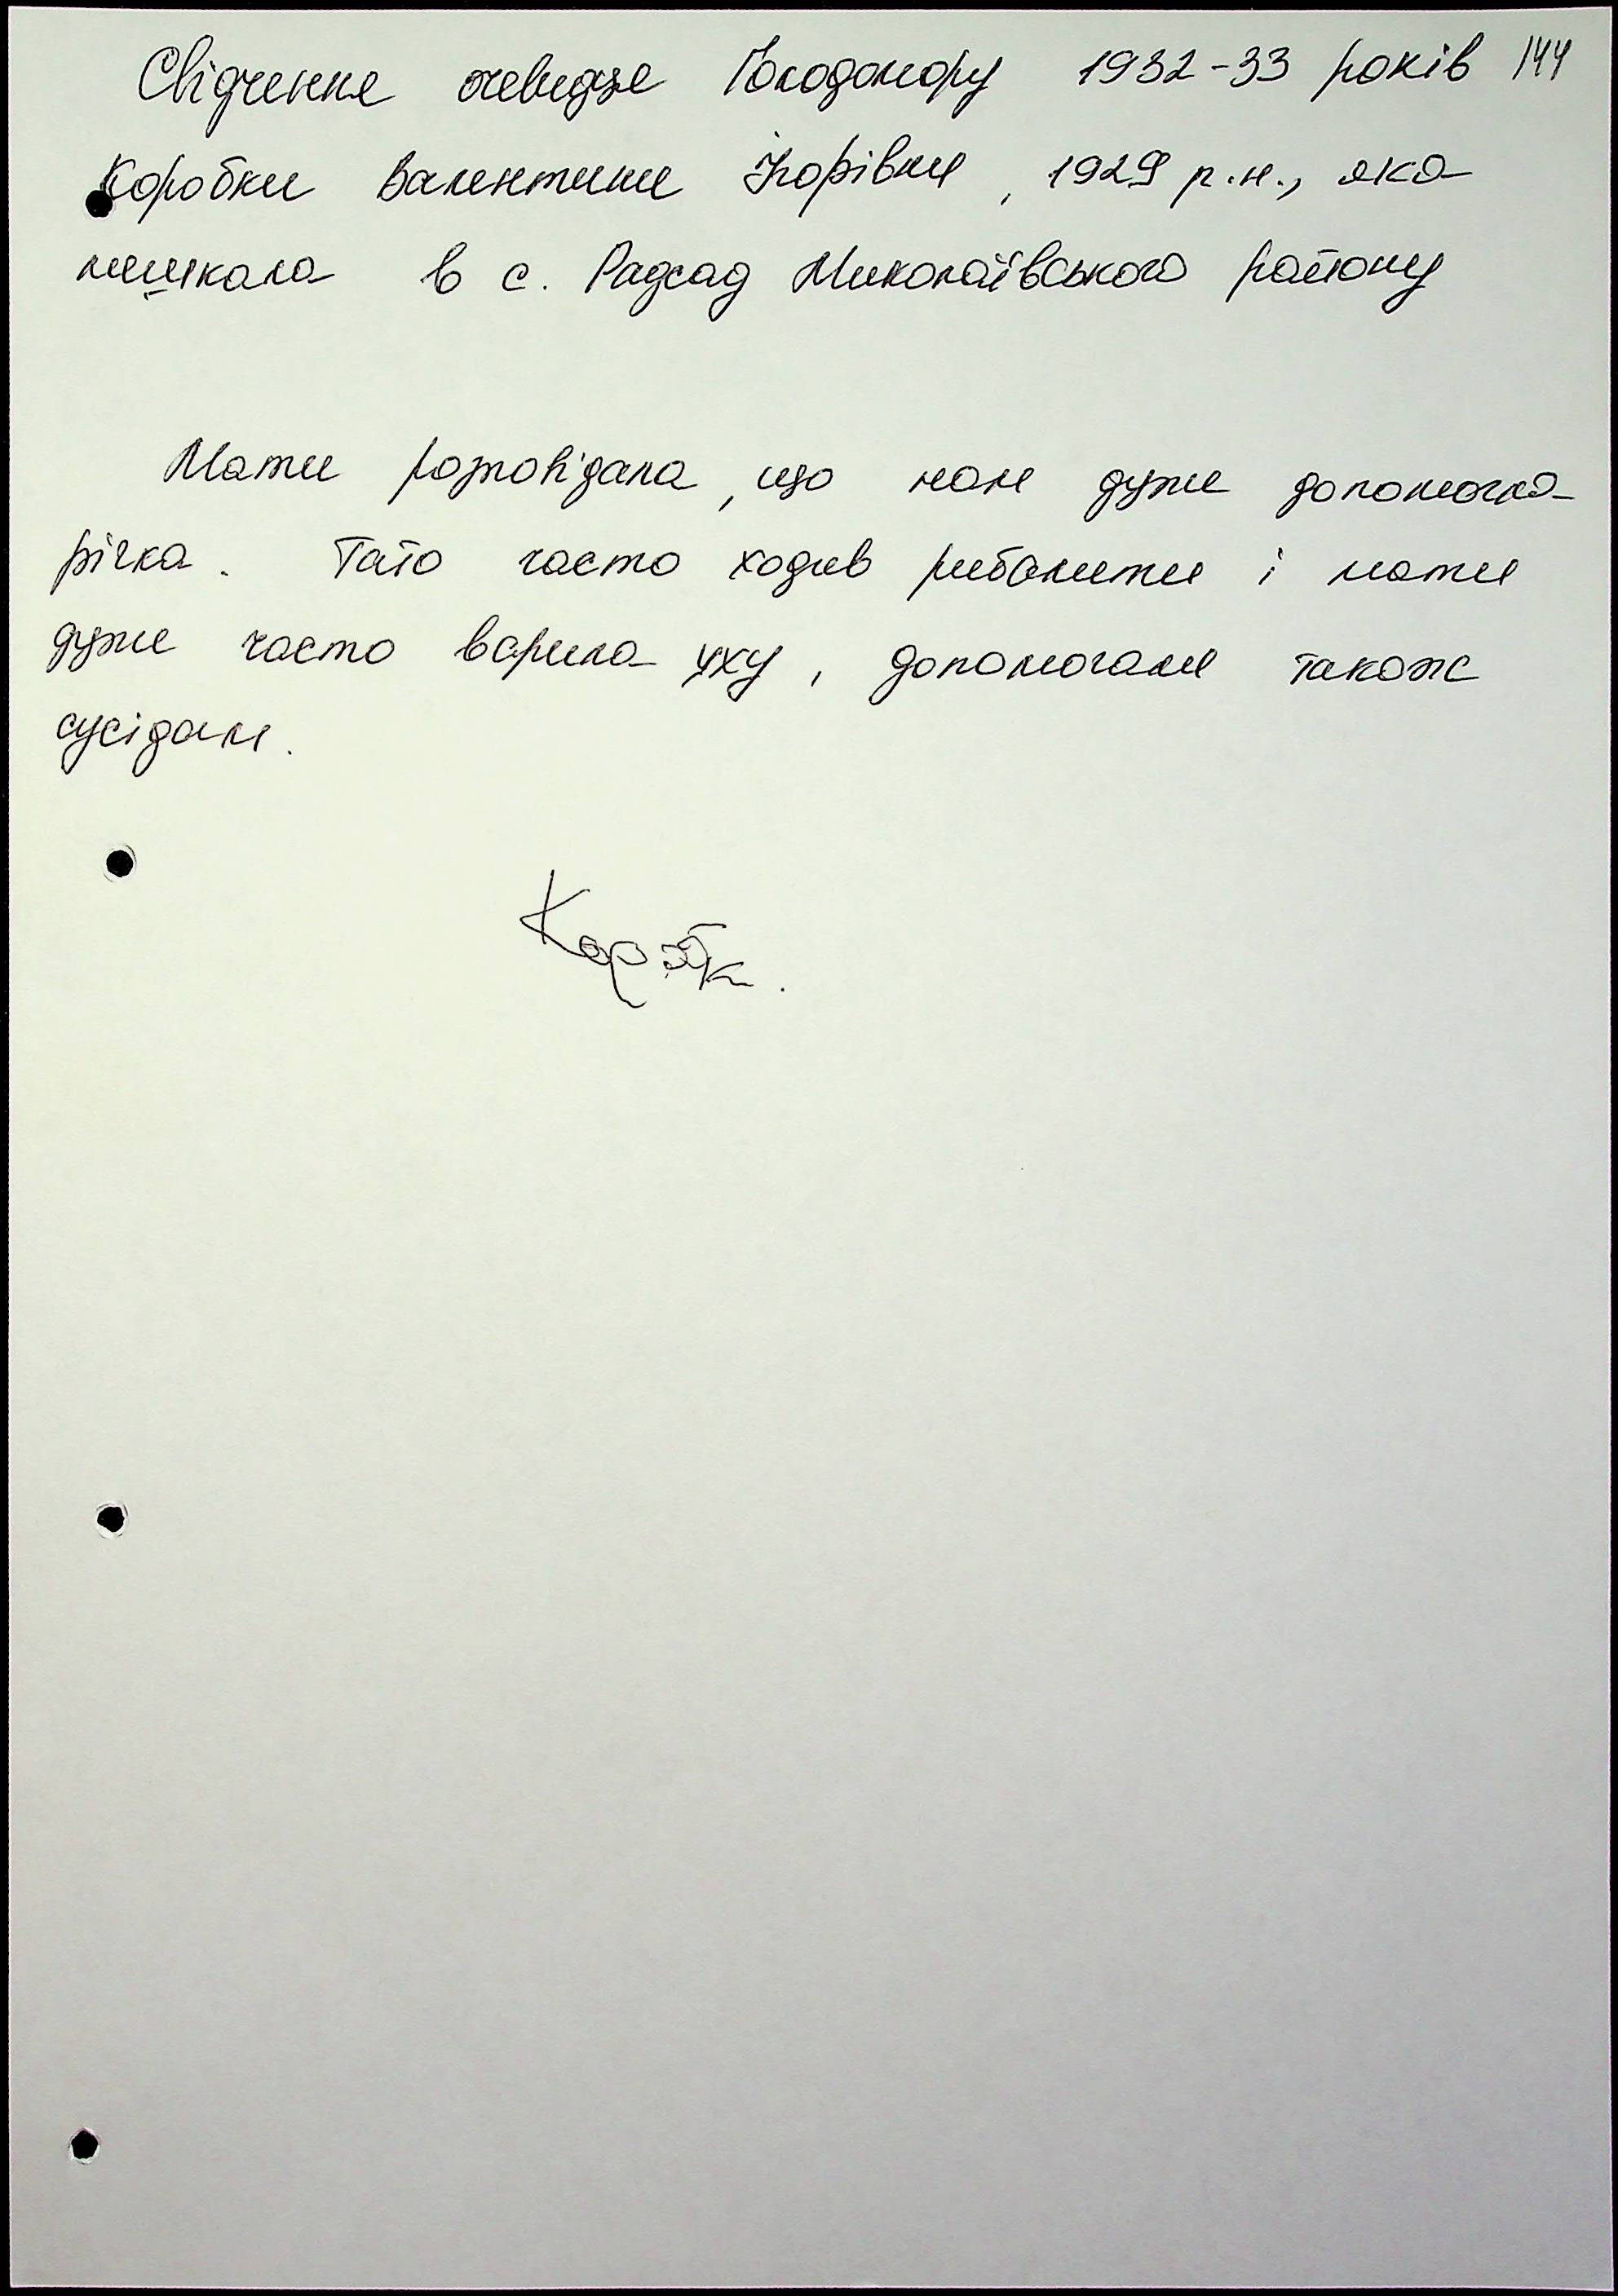 Свідчення очевидця Голодомору 1932-33 років 144
Коробки Валентини Ігорівни, 1929 р.н., яка
мешкала в с. Радсад Миколаївського району
Мати розповідала, що нам дуже допомогла
річка. Тато часто ходив рибалити і мати
дуже часто варила уху, допомагали також
сусідам.
Коробк.